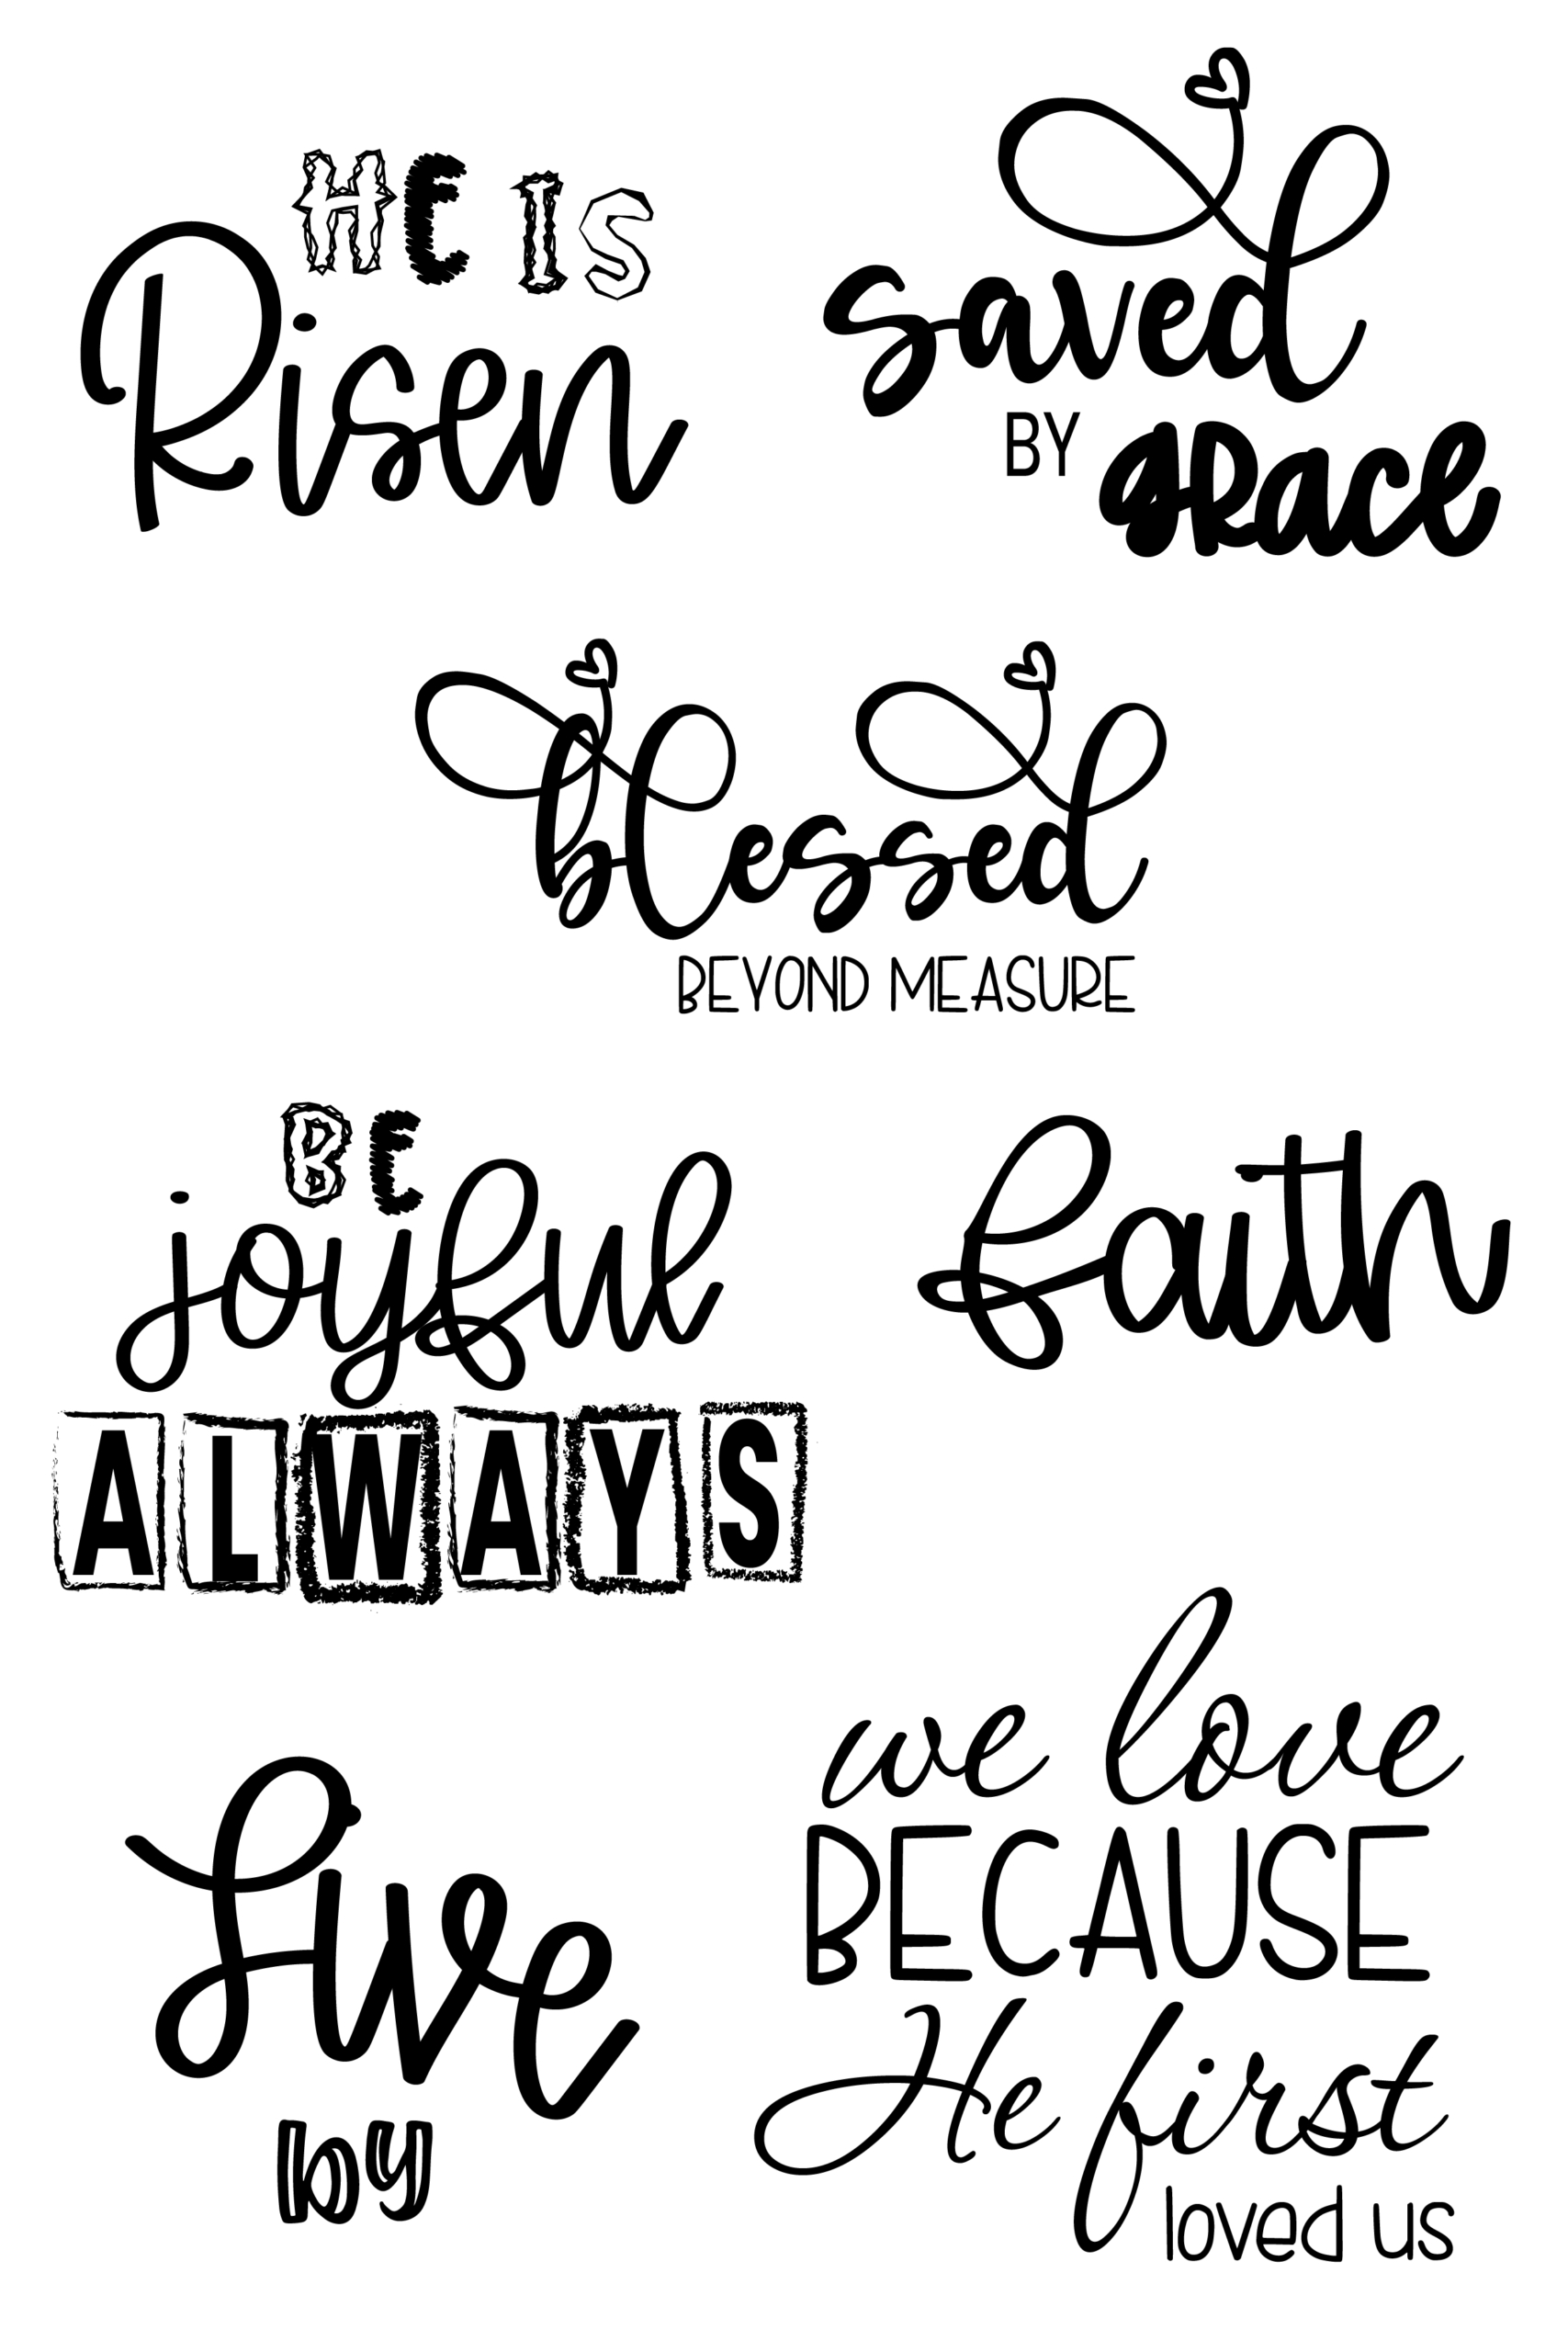 HE IS
Risen
saved
BY
gRace
blessed
BEYOND MEASURE
BE
joyful
ALWAYS
Faith
Live
by
we love
BECAUSE
He first
loved us